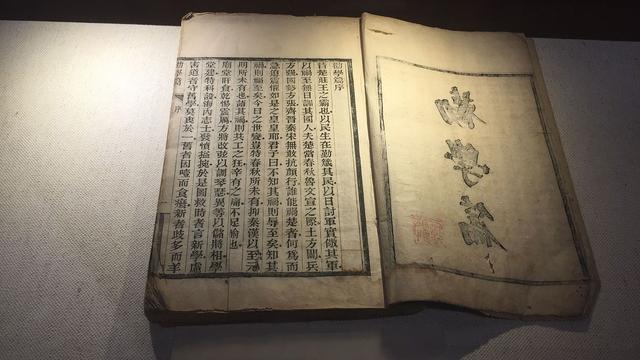 勸學篇
勸學篇序
昔楚莊王之霸也以民生在勤箴其民以日討軍實儆其軍
以禍至無日訓其國人夫楚當春秋魯文宣之際土方闢兵
方強國勢方張齊晉秦宋無敢抗顏行誰能禍楚者何為而
急迫震懼如是之皇皇耶君子曰不知其禍則辱至矣知其
禍則福至矣今日之世變豈特春秋所未有抑秦漢以至元
明所未有也語其禍則共工之狂辛有之痛不足喻也
廟堂旰食乾惕震厲方將改弦以調琴瑟異等以儲將相學
堂建特科設海內志士發憤搤捥於是圖救時者言新學慮
害道者守舊學莫衷於一舊者因噎而食廢新者歧多而羊
勸學篇 序